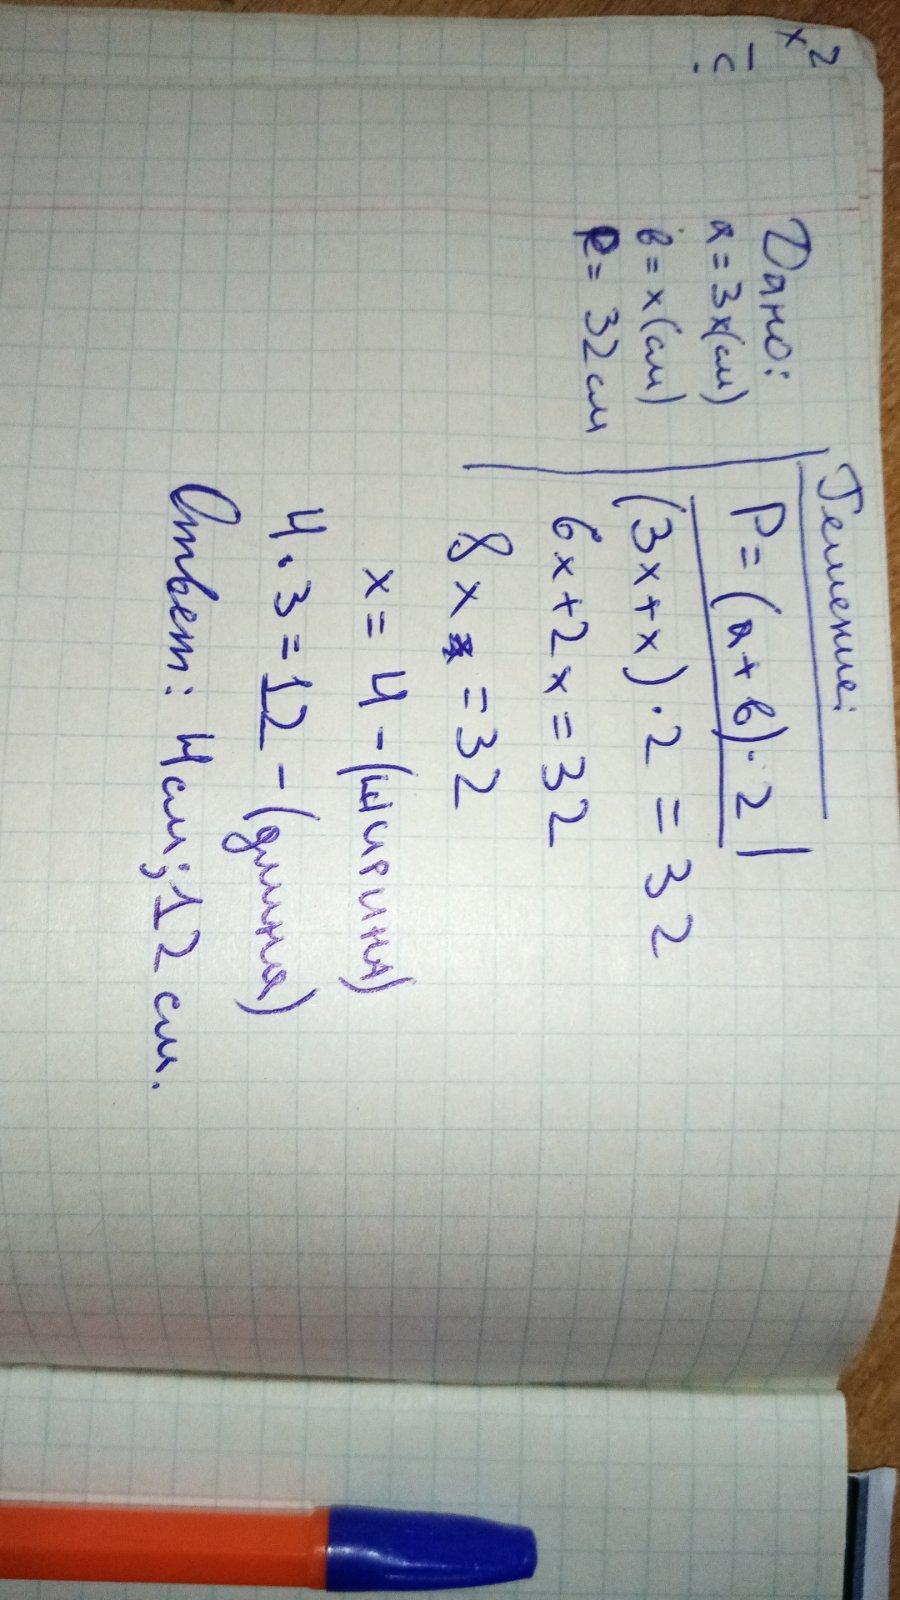 x²
Дано:
a = 3x(см)
в = x(см)
P = 32 см
Решение:
P = (a + в) · 2
(3x + x) · 2 = 32
6x + 2x = 32
8x = 32
x = 4 - (ширина)
4 · 3 = 12 - (длина)
Ответ: 4 см; 12 см.